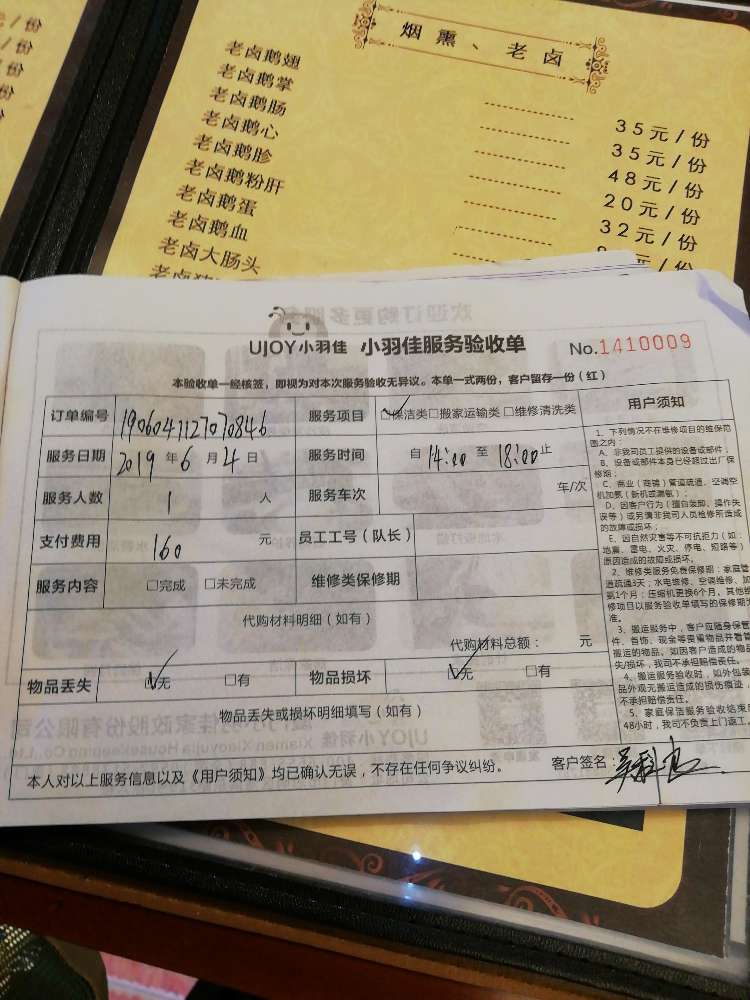 烟熏、老卤
老卤鹅翅
老卤鹅掌
老卤鹅肠 35元/份
老卤鹅心 35元/份
老卤鹅胗 48元/份
老卤鹅粉肝 20元/份
老卤鹅蛋 32元/份
老卤鹅血
老卤大肠头
UJOY小羽佳 小羽佳服务验收单 No.1410009
本验收单一经核签，即视为对本次服务验收无异议。本单一式两份，客户留存一份（红）
订单编号 1906041127070846 服务项目 ☑保洁类□搬家运输类□维修清洗类
服务日期 2019年6月4日 服务时间 自14:00至18:00止
服务人数 1 人 服务车次 车/次
支付费用 160 元 员工工号（队长）
服务内容 □完成 □未完成 维修类保修期
代购材料明细（如有）
代购材料总额： 元
物品丢失 ☑无 □有 物品损坏 ☑无 □有
物品丢失或损坏明细填写（如有）
本人对以上服务信息以及《用户须知》均已确认无误，不存在任何争议纠纷。 客户签名：
用户须知
1、下列情况不在维修项目的维保范
围之内：
A、非我司员工提供的设备或部件；
B、设备或部件本身已经超过出厂保
修期；
C、商业（商铺）管道疏通、空调空
机加氨（新机或漏氨）；
D、因客户行为（擅自装卸、操作失
误等）或另请非我司人员检修所造成
的故障或损坏；
E、因自然灾害等不可抗力（如：
地震、雷电、火灾、停电、短路等）
原因造成的故障或损坏。
2、维修类服务免费保修期：家庭管
道疏通3天；水电维修、空调维修、加
氨1个月；压缩机更换6个月。其他维
修项目以服务验收单填写的保修期为
准。
3、搬运服务中，客户应随身保管
件、首饰、现金等贵重物品并看管
搬运的物品。如因客户造成的物品
失/损坏，我司不承担赔偿责任。
4、搬运服务验收时，如外包装
品外观无搬运造成的损伤痕迹，
不承担赔偿责任。
5、家庭保洁服务验收结束后
48小时，我司不负责上门返工。